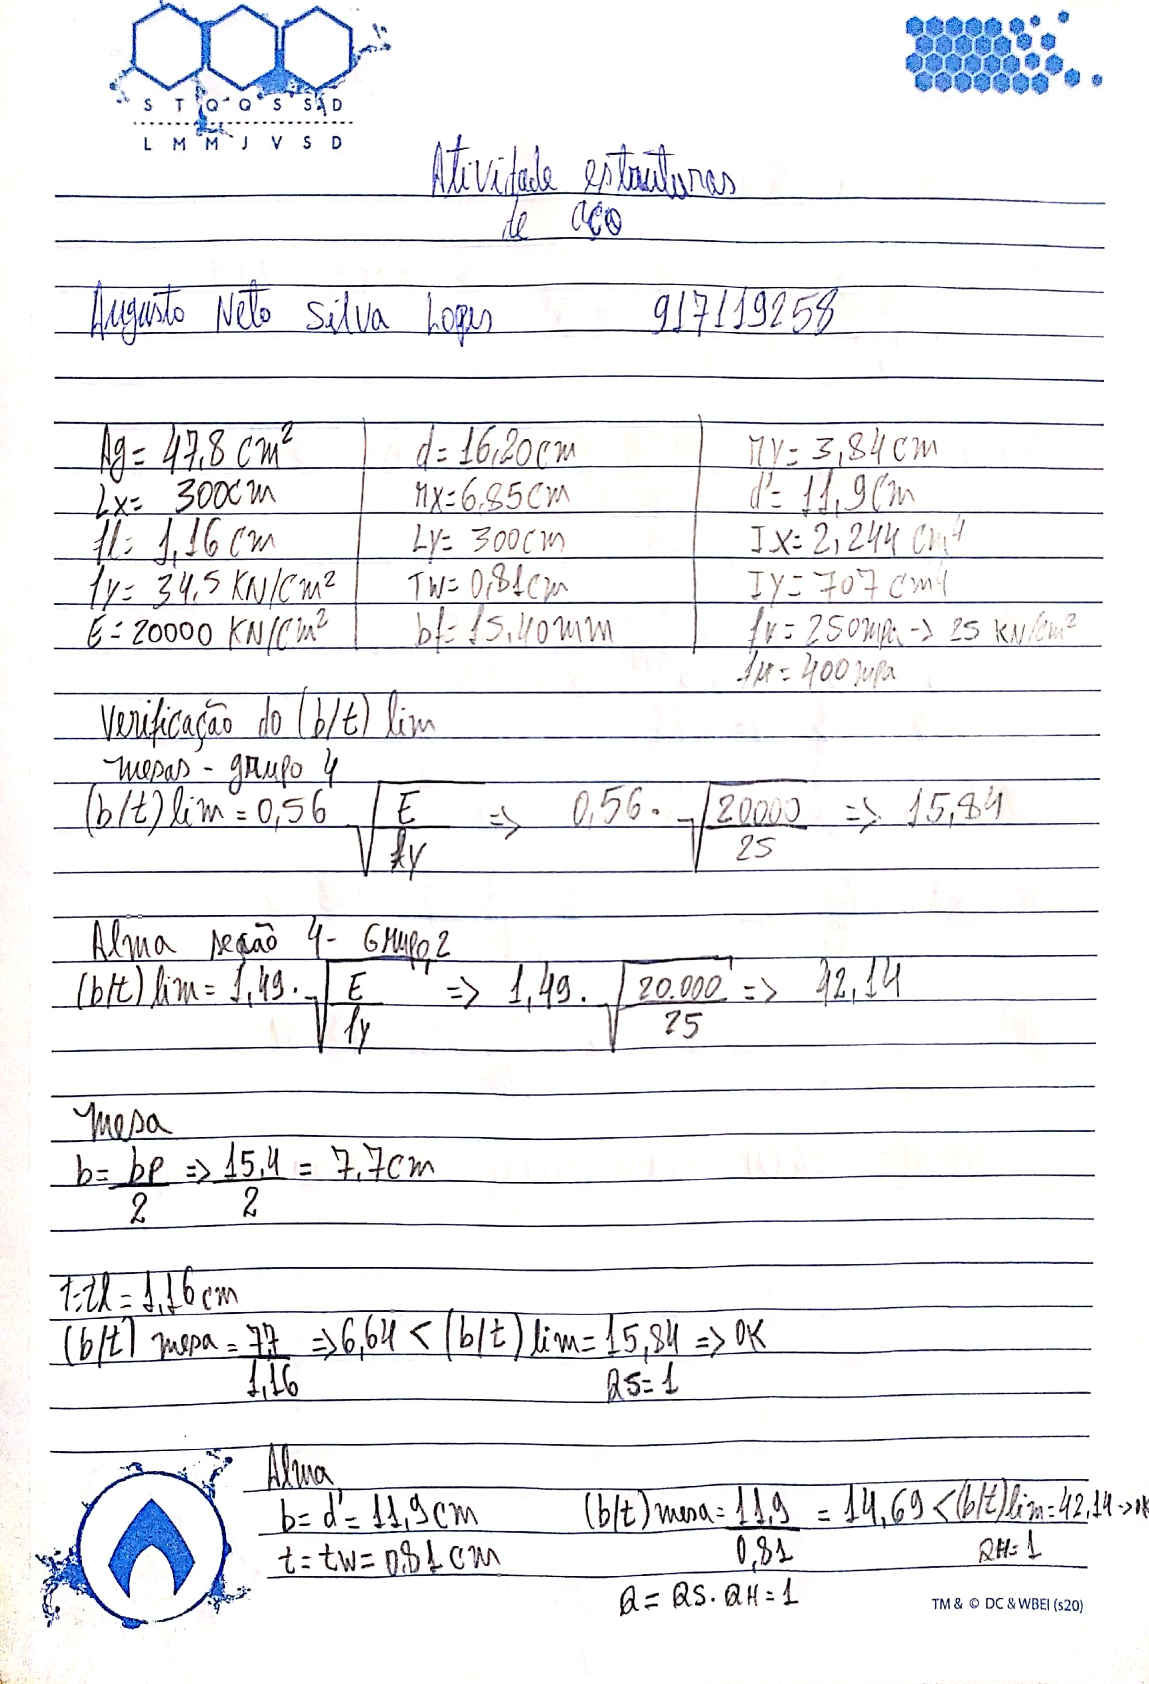 S T Q Q S S D
L M M J V S D
Atividade estruturas
de aço
Augusto Neto Silva Lopes 917119258
Ag = 47,8 cm² d = 16,20 cm ry = 3,84 cm
Lx = 300 cm rx = 6,85 cm d' = 11,9 cm
tf = 1,16 cm Ly = 300 cm Ix = 2,244 cm4
fy = 34,5 KN/cm² Tw = 0,81 cm Iy = 707 cm4
E = 20000 KN/cm² bf = 15,40 mm fy = 250 mpa -> 25 KN/cm²
fu = 400 mpa
Verificação do (b/t) lim
mesas - grupo 4
(b/t) lim = 0,56 √(E/fy) => 0,56 . √(20000/25) => 15,84
Alma seção 4 - Grupo 2
(b/t) lim = 1,49 . √(E/fy) => 1,49 . √(20.000/25) => 42,14
mesa
b = bf/2 => 15,4/2 = 7,7 cm
t = tf = 1,16 cm
(b/t) mesa = 7,7/1,16 => 6,64 < (b/t) lim = 15,84 => OK
QS = 1
Alma
b = d' = 11,9 cm (b/t) mesa = 11,9/0,81 = 14,69 < (b/t) lim = 42,14 -> OK
t = tw = 0,81 cm QA = 1
Q = QS . QA = 1
TM & © DC & WBEI (s20)